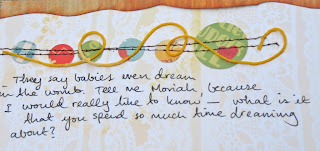 They say babies even dream
in the womb. Tell me Moriah, because
I would really like to know — what is it
that you spend so much time dreaming
about?